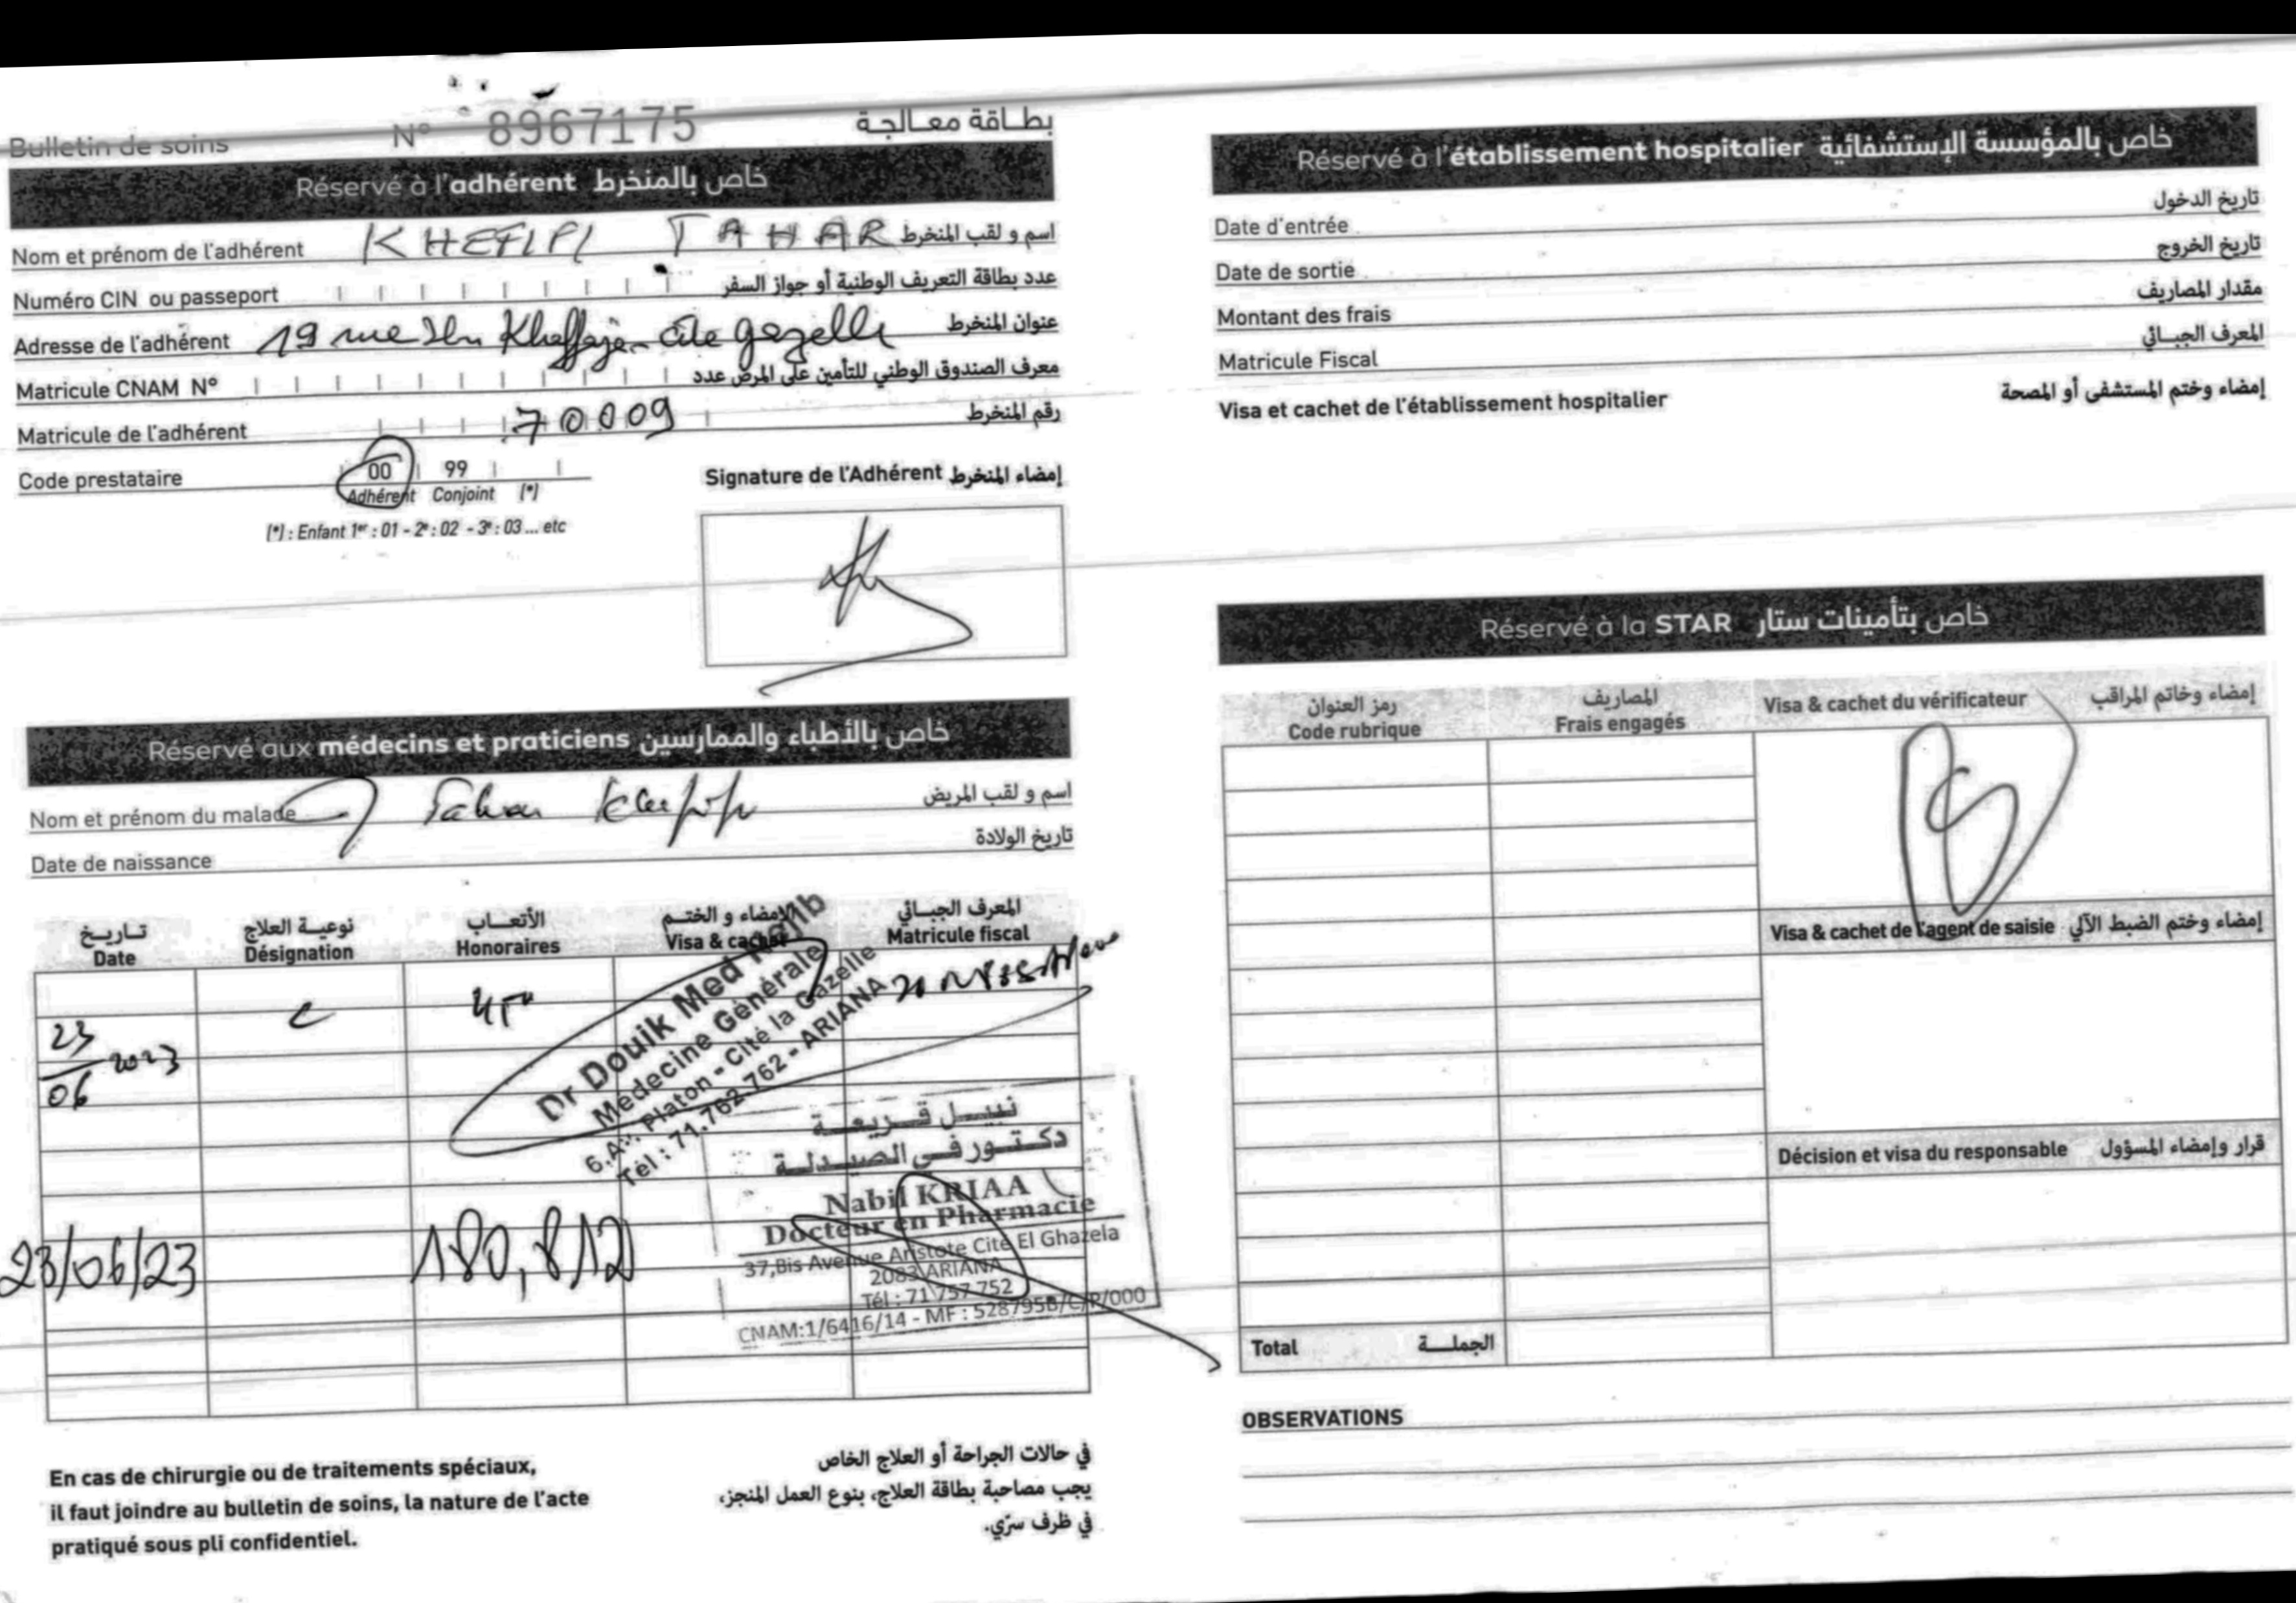 Bulletin de soins N° 8967175 بطاقة معالجة
Réservé à l'adhérent خاص بالمنخرط
Nom et prénom de l'adhérent KHEFIFI TAHAR اسم و لقب المنخرط
Numéro CIN ou passeport عدد بطاقة التعريف الوطنية أو جواز السفر
Adresse de l'adhérent 19 rue Ibn Khaffaja - cite gazelle عنوان المنخرط
Matricule CNAM N° معرف الصندوق الوطني للتأمين على المرض عدد
Matricule de l'adhérent 70009 رقم المنخرط
Code prestataire 00 99
Adhérent Conjoint (*)
(*) : Enfant 1er : 01 - 2e : 02 - 3e : 03 ... etc
Signature de l'Adhérent إمضاء المنخرط
Réservé aux médecins et praticiens خاص بالأطباء والممارسين
Nom et prénom du malade Tahar اسم و لقب المريض
Date de naissance تاريخ الولادة
تاريخ نوعية العلاج الأتعاب الإمضاء و الختم المعرف الجبائي
Date Désignation Honoraires Visa & cachet Matricule fiscal
23/06 2023 C
Dr Douik Med Najib
Médecine Générale
6, Av. Platon - Cité la Gazelle
Tél : 71.762.762 - ARIANA
23/06/23 180,812
نبيل قريعة
دكتور في الصيدلة
Nabil KRIAA
Docteur en Pharmacie
37,Bis Avenue Aristote Cité El Ghazela
2083 ARIANA
Tél : 71 757 752
CNAM:1/6416/14 - MF : 528795B/C/P/000
En cas de chirurgie ou de traitements spéciaux,
il faut joindre au bulletin de soins, la nature de l'acte
pratiqué sous pli confidentiel.
في حالات الجراحة أو العلاج الخاص
يجب مصاحبة بطاقة العلاج، بنوع العمل المنجز،
في ظرف سرّي.
Réservé à l'établissement hospitalier خاص بالمؤسسة الإستشفائية
Date d'entrée تاريخ الدخول
Date de sortie تاريخ الخروج
Montant des frais مقدار المصاريف
Matricule Fiscal المعرف الجبائي
Visa et cachet de l'établissement hospitalier إمضاء وختم المستشفى أو المصحة
Réservé à la STAR خاص بتأمينات ستار
رمز العنوان المصاريف
Code rubrique Frais engagés
Visa & cachet du vérificateur إمضاء وخاتم المراقب
Visa & cachet de l'agent de saisie إمضاء وختم الضبط الآلي
Décision et visa du responsable قرار وإمضاء المسؤول
Total الجملة
OBSERVATIONS